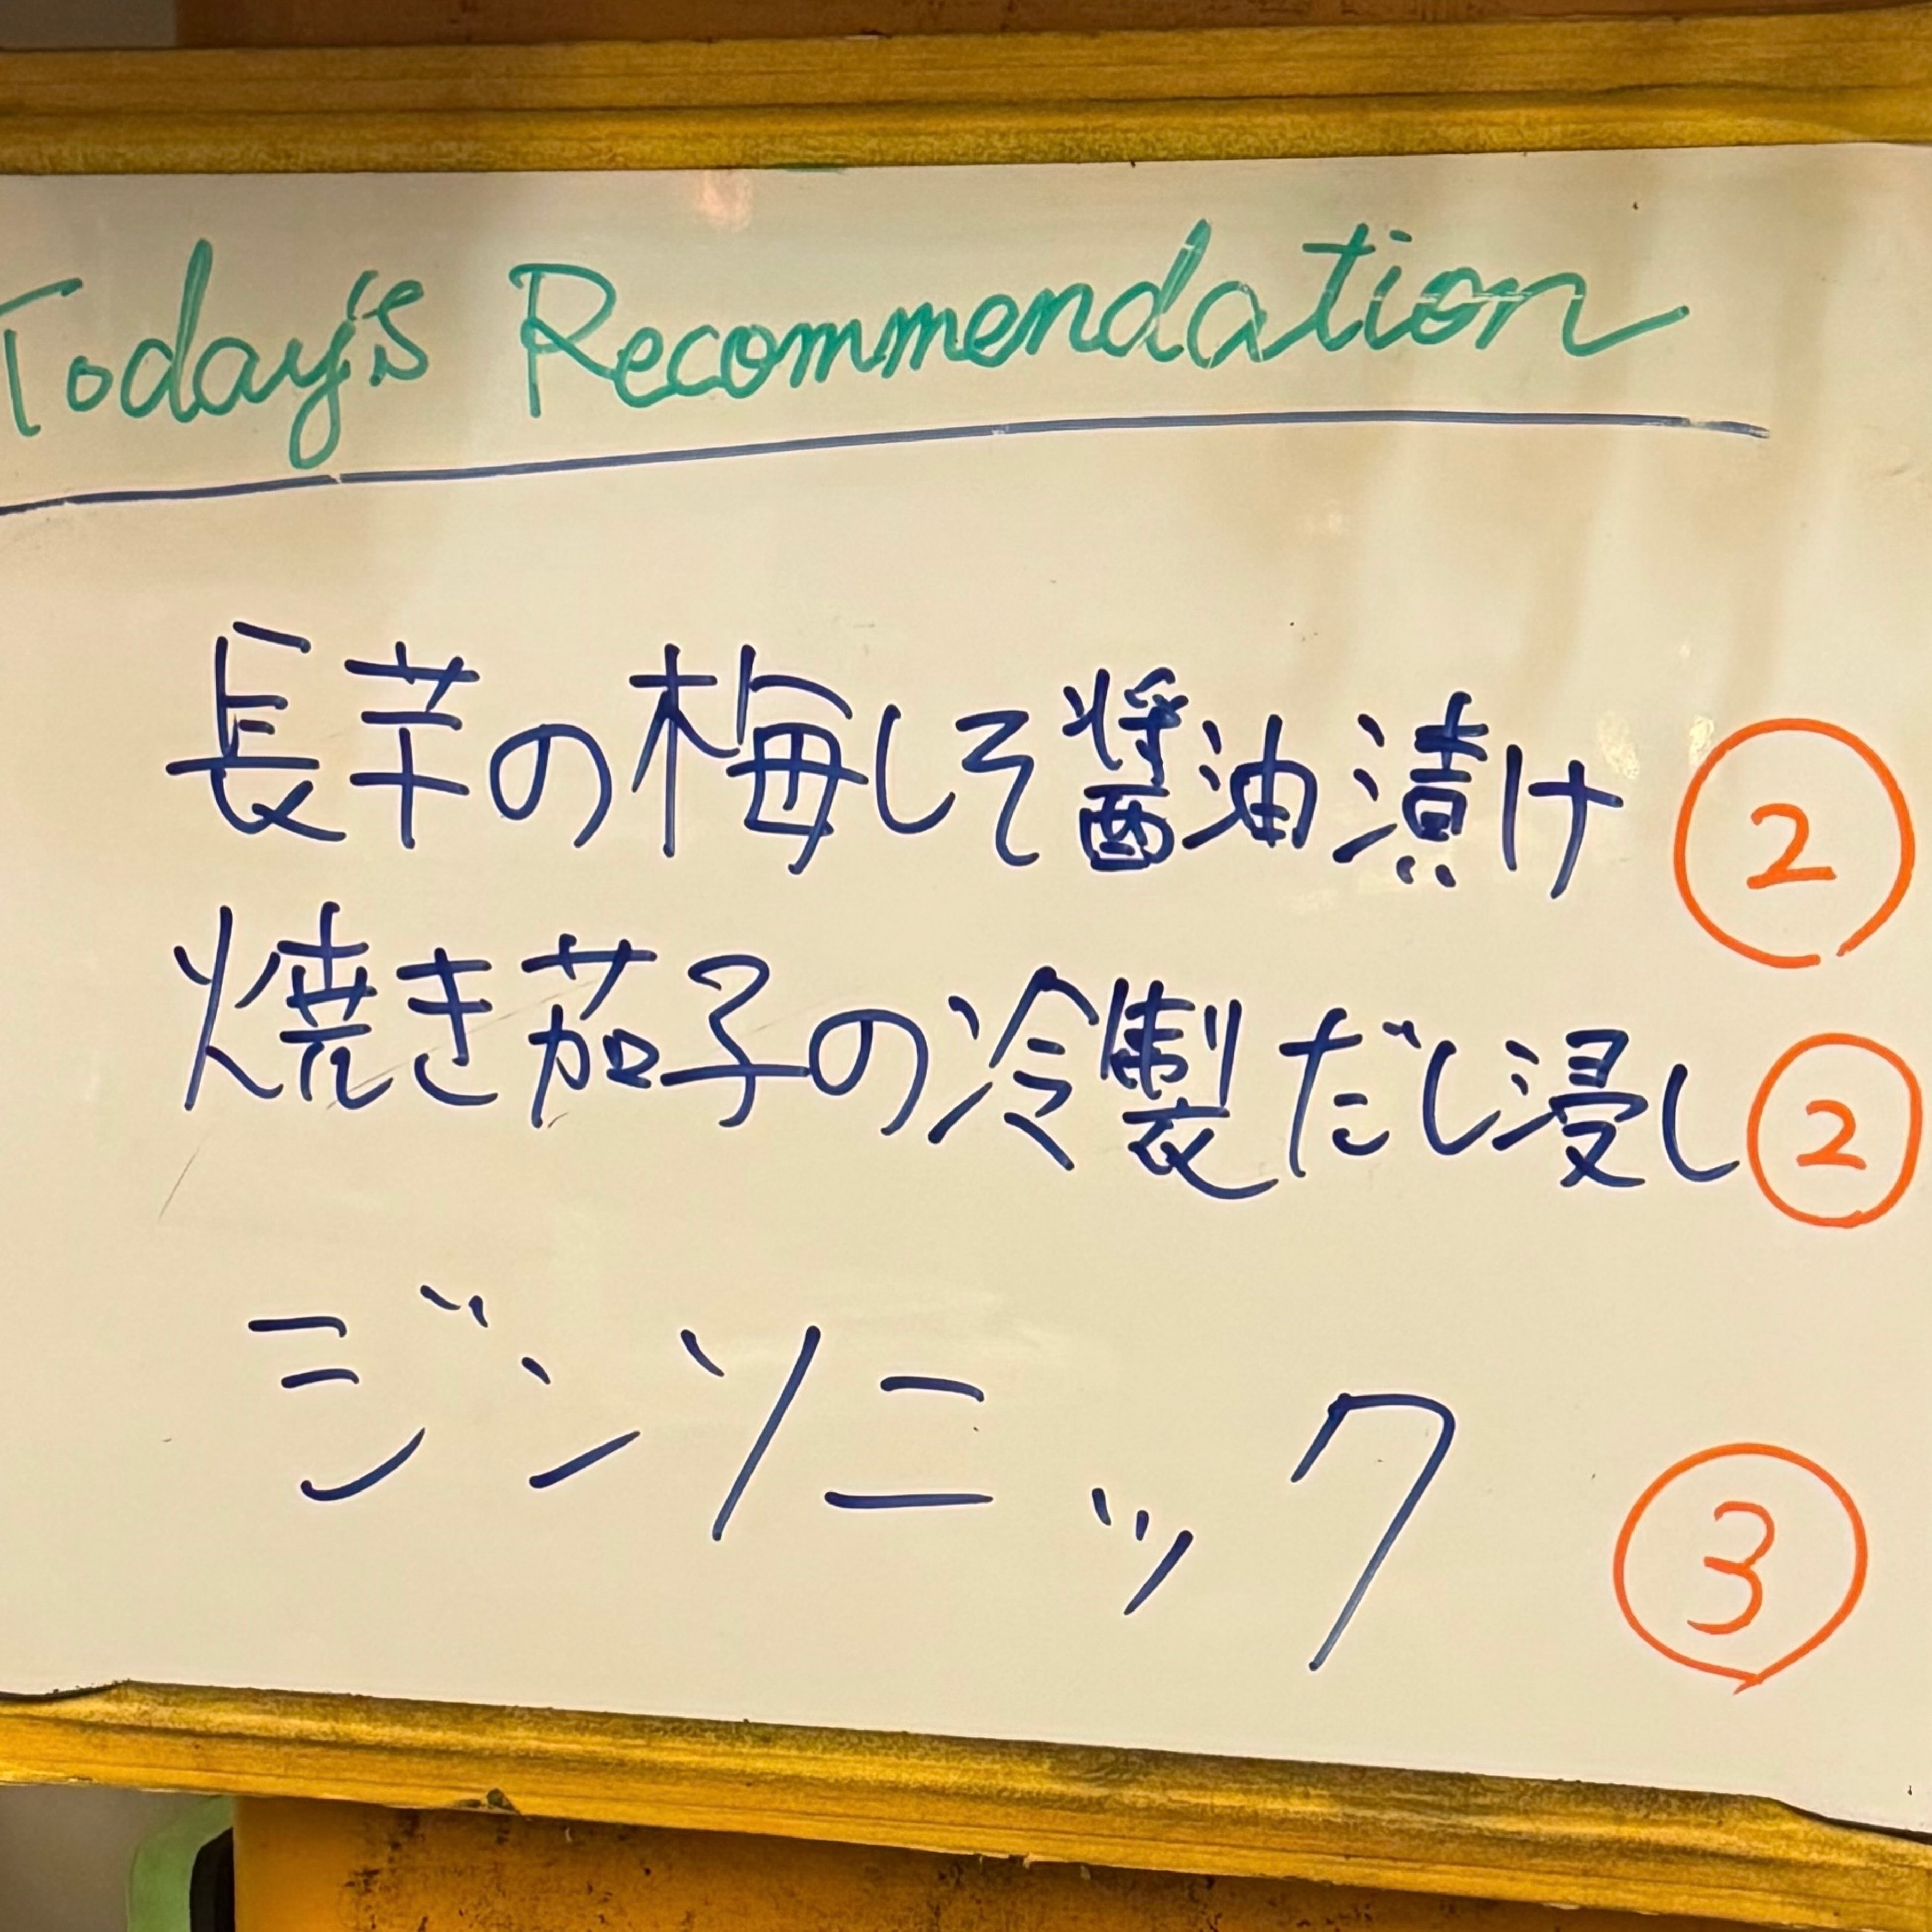 Today's Recommendation
長芋の梅しそ醤油漬け ②
焼き茄子の冷製だし浸し ②
ジンソニック ③